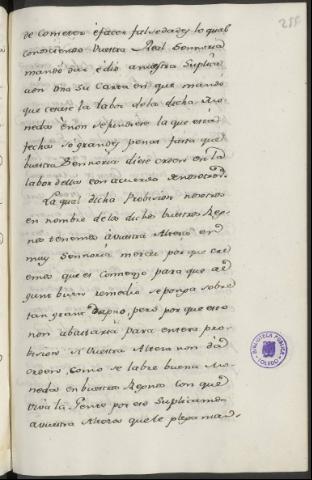 de Cometer é facer falsedades, lo qual
conosciendo Vuestra Real Sennoria
mandó dar é dió a nuestra Suplica
cion una su Carta en que mandó
que cesase la labor de la dicha Mo
neda é non se fundiese la que está
fecha so grandes penas fasta que
vuestra Sennoria diese orden en la
labor dellas con acuerdo de nosotros.
La qual dicha Provision nosotros
en nombre de los dichos vuestros Rey-
nos tenemos á vuestra Alteza en
muy Sennoria merced por que cre
emos que es Comienzo para que al
gunt buen remedio se ponga sobre
tan grant dapno, pero por que esto
non abastaria para entera pro-
bision si Vuestra Alteza non dá
orden, como se labre buena Mo-
neda en vuestros Regnos con que
viva la Gente por eso Suplicamos
a vuestra Alteza que le plega man-
BIBLIOTECA PUBLICA
TOLEDO